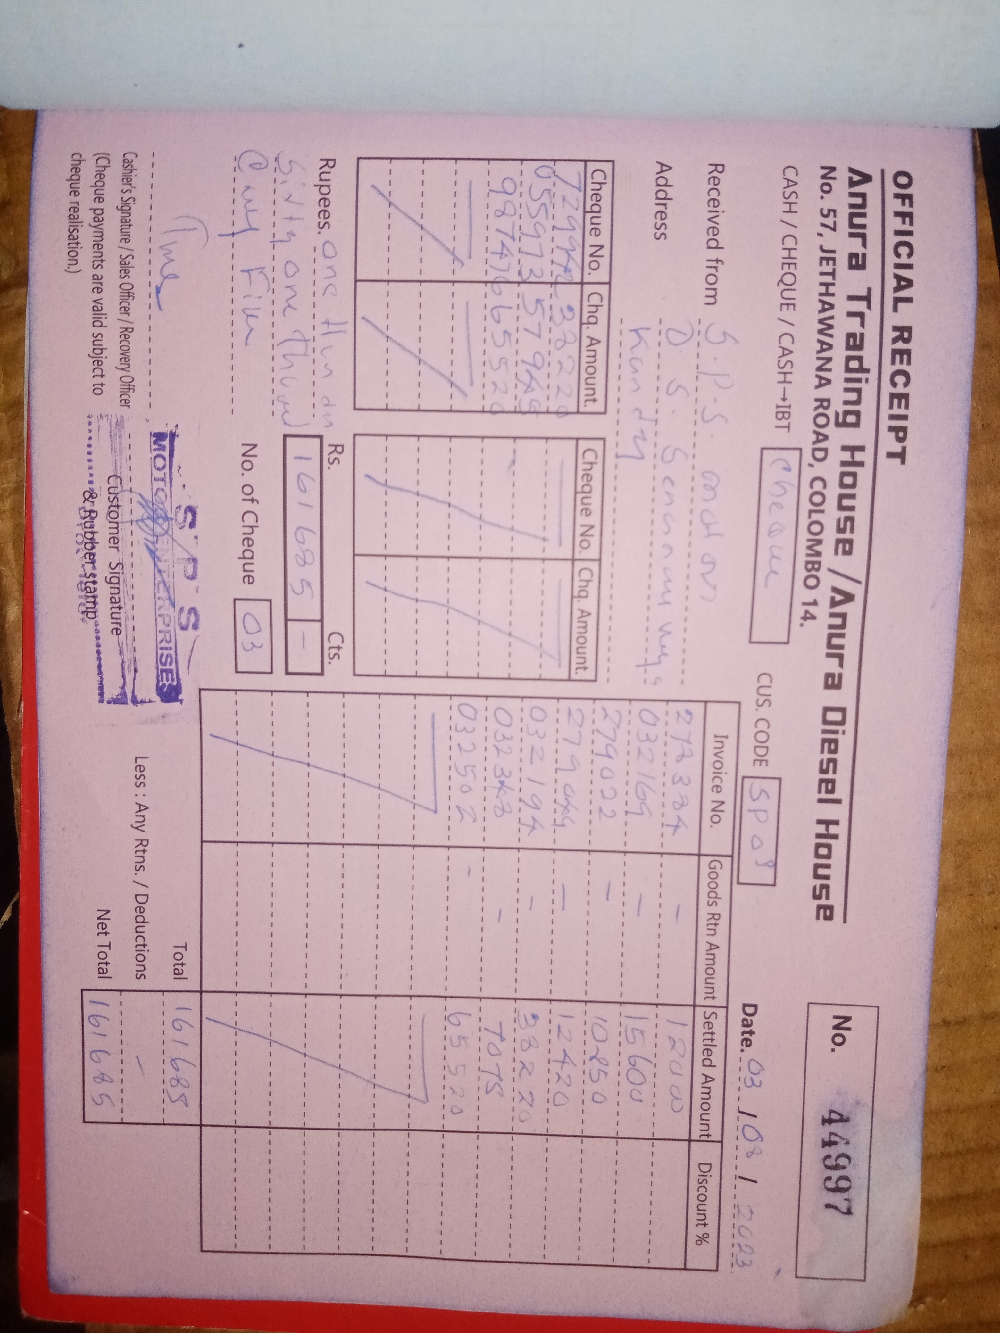 OFFICIAL RECEIPT
Anura Trading House / Anura Diesel House
No. 57, JETHAWANA ROAD, COLOMBO 14.
No. 44997
CASH / CHEQUE / CASH→IBT Cheque
CUS. CODE SP08
Date. 03 / 08 / 2023
Received from S.P.S. motors
Address D.S. Senanayaka
Kandy
Cheque No. Chq. Amount.
729942 38220
055973 57945
987476 65520
Cheque No. Chq. Amount.
Rupees. One Hundred
Sixty one thousand
Rs. Cts.
161685 -
No. of Cheque 03
Invoice No. Goods Rtn Amount Settled Amount Discount %
278384 - 12000
032169 - 15600
279022 - 10850
279044 - 12420
032194 - 38220
032348 - 7075
032502 - 65520
Total 161685
Less : Any Rtns. / Deductions -
Net Total 161685
Cashier's Signature / Sales Officer / Recovery Officer
(Cheque payments are valid subject to
cheque realisation.)
S P S
Customer Signature
& Rubber stamp